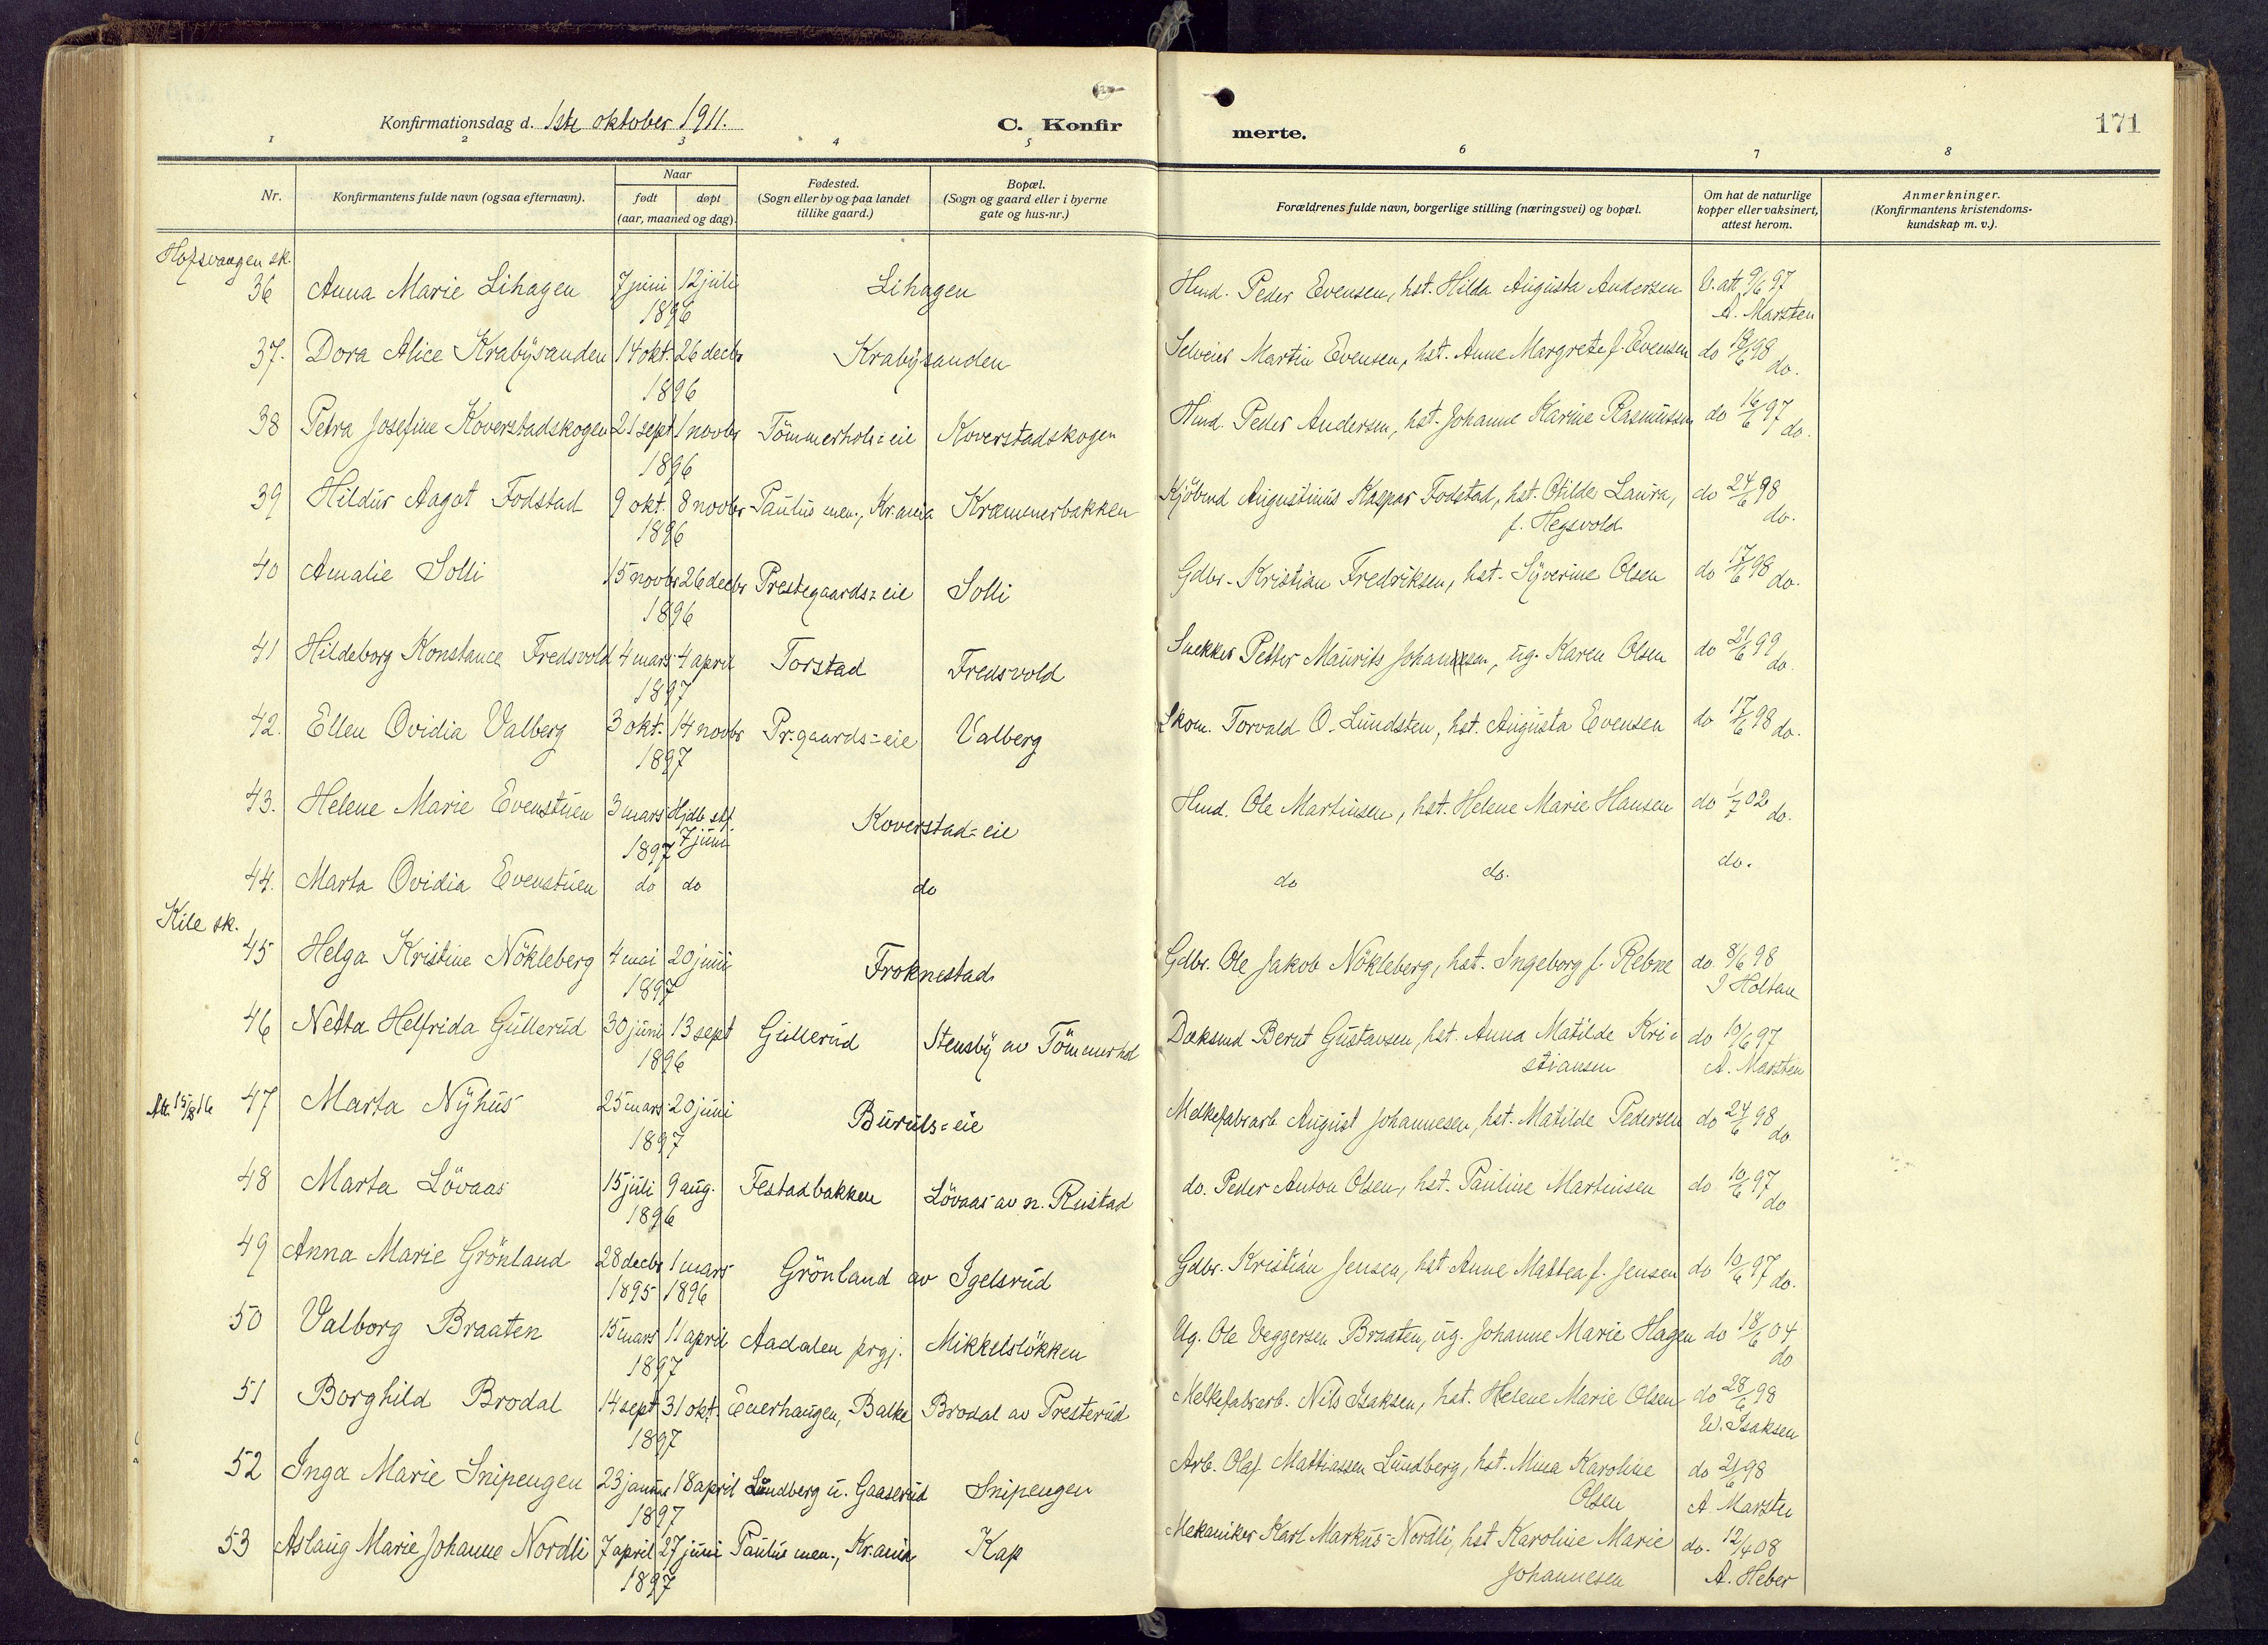 Konfirmationsdag d. 1ste oktober 1911.
C. Konfirmerte.
171
1 2 3 4 5 6 7 8
Nr. | Konfirmantens fulde navn (ogsaa efternavn). | Naar født døpt (aar, maaned og dag). | Fødested. (Sogn eller by og paa landet tillike gaard.) | Bopæl. (Sogn og gaard eller i byerne gate og hus-nr.) | Forældrenes fulde navn, borgerlige stilling (næringsvei) og bopæl. | Om hat de naturlige kopper eller vaksinert, attest herom. | Anmerkninger. (Konfirmantens kristendoms-kundskap m. v.).
Hofsvangen sk.
36 Anna Marie Lihagen 7 juni 12 juli 1896 Lihagen Hmd. Peder Evensen, hst. Hilda Augusta Andersen V. att 9/6 97 A. Marsten
37. Dora Alice Krabÿsanden 14 okt. 26 decbr 1896 Krabÿsanden Selveier Martin Evensen, hst. Anne Margrete f. Evensen do 18/6 98 do.
38 Petra Josefine Koverstadskogen 21 sept 1 novbr 1896 Tömmerhols=eie Koverstadskogen Hmd. Peder Andersen, hst. Johanne Karine Rasmussen do 16/6 97 do.
39 Hildur Aagot Fodstad 9 okt. 8 novbr 1896 Paulus men., Kr.ania Kræmmerbakken Kjöbmd Augustinus Kaspar Fodstad, hst. Otilde Laura, f. Hegsvold do 24/6 98 do.
40 Amalie Solli 15 novbr 26 decbr 1896 Prestegaards=eie Solli Gdbr. Kristian Fredriksen, hst. Sÿverine Olsen do 17/6 98 do.
41 Hildeborg Konstance Fredsvold 4 mars 4 april 1897 Torstad Fredsvold Snekker Petter Maurits Johansen, ug. Karen Olsen do 21/6 99 do.
42. Ellen Ovidia Valberg 3 okt. 14 novbr 1897 Pr.gaards=eie Valberg Skom. Torvald O. Lundsten, hst. Augusta Evensen do 17/6 98 do.
43. Helene Marie Evenstuen 3 mars Hjdb stf. 7 juni 1897 Koverstad=eie Hmd. Ole Martinsen, hst. Helene Marie Hansen do 1/7 02 do.
44. Marta Ovidia Evenstuen do do do do do. do.
Kile sk.
45 Helga Kristine Nökleberg 4 mai 20 juni 1897 Froknestad Gdbr. Ole Jakob Nökleberg, hst. Ingeborg f. Rebne do. 8/6 98 I Holtan
46 Netta Helfrida Gullerud 30 juni 13 sept 1896 Gullerud Stensbÿ av Tömmerhol Dæksmd Bernt Gustavsen, hst. Anna Matilde Kristiansen do 10/6 97 A. Marsten
Att. 15/8 16 47 Marta Nÿhus 25 mars 20 juni 1897 Buruls=eie Melkefabrarb. August Johannesen, hst. Matilde Pedersen do 24/6 98 do
48 Marta Lövaas 15 juli 9 aug. 1896 Festadbakken Lövaas av n. Rustad do. Peder Anton Olsen, hst. Pauline Martinsen do 10/6 97 do
49 Anna Marie Grönland 28 decbr 1895 1 mars 1896 Grönland av Igelsrud Gdbr. Kristian Jensen, hst Anne Mattea f. Jensen do 10/6 97 do.
50 Valborg Braaten 15 mars 11 april 1897 Aadalen prgj. Mikkelslökken Ug. Ole Veggersen Braaten, ug. Johanne Marie Hagen do 18/6 04 do
51 Borghild Brodal 14 sept 31 okt. 1897 Enerhaugen, Balke Brodal av Presterud Melkefabrarb. Nils Isaksen, hst. Helene Marie Olsen do 28/6 98 W. Isaksen
52 Inga Marie Snipengen 23 januar 18 april 1897 Lundberg u. Gaaserud Snipengen Arb. Olaf Mattiassen Lundberg, hst. Mina Karoline Olsen do 21/6 98 A. Marsten
53 Aslaug Marie Johanne Nordli 7 april 27 juni 1897 Paulus men., Kr.ania Kap Mekaniker Karl Markus Nordli, hst Karoline Marie Johannesen do. 12/4 08 A. Heber